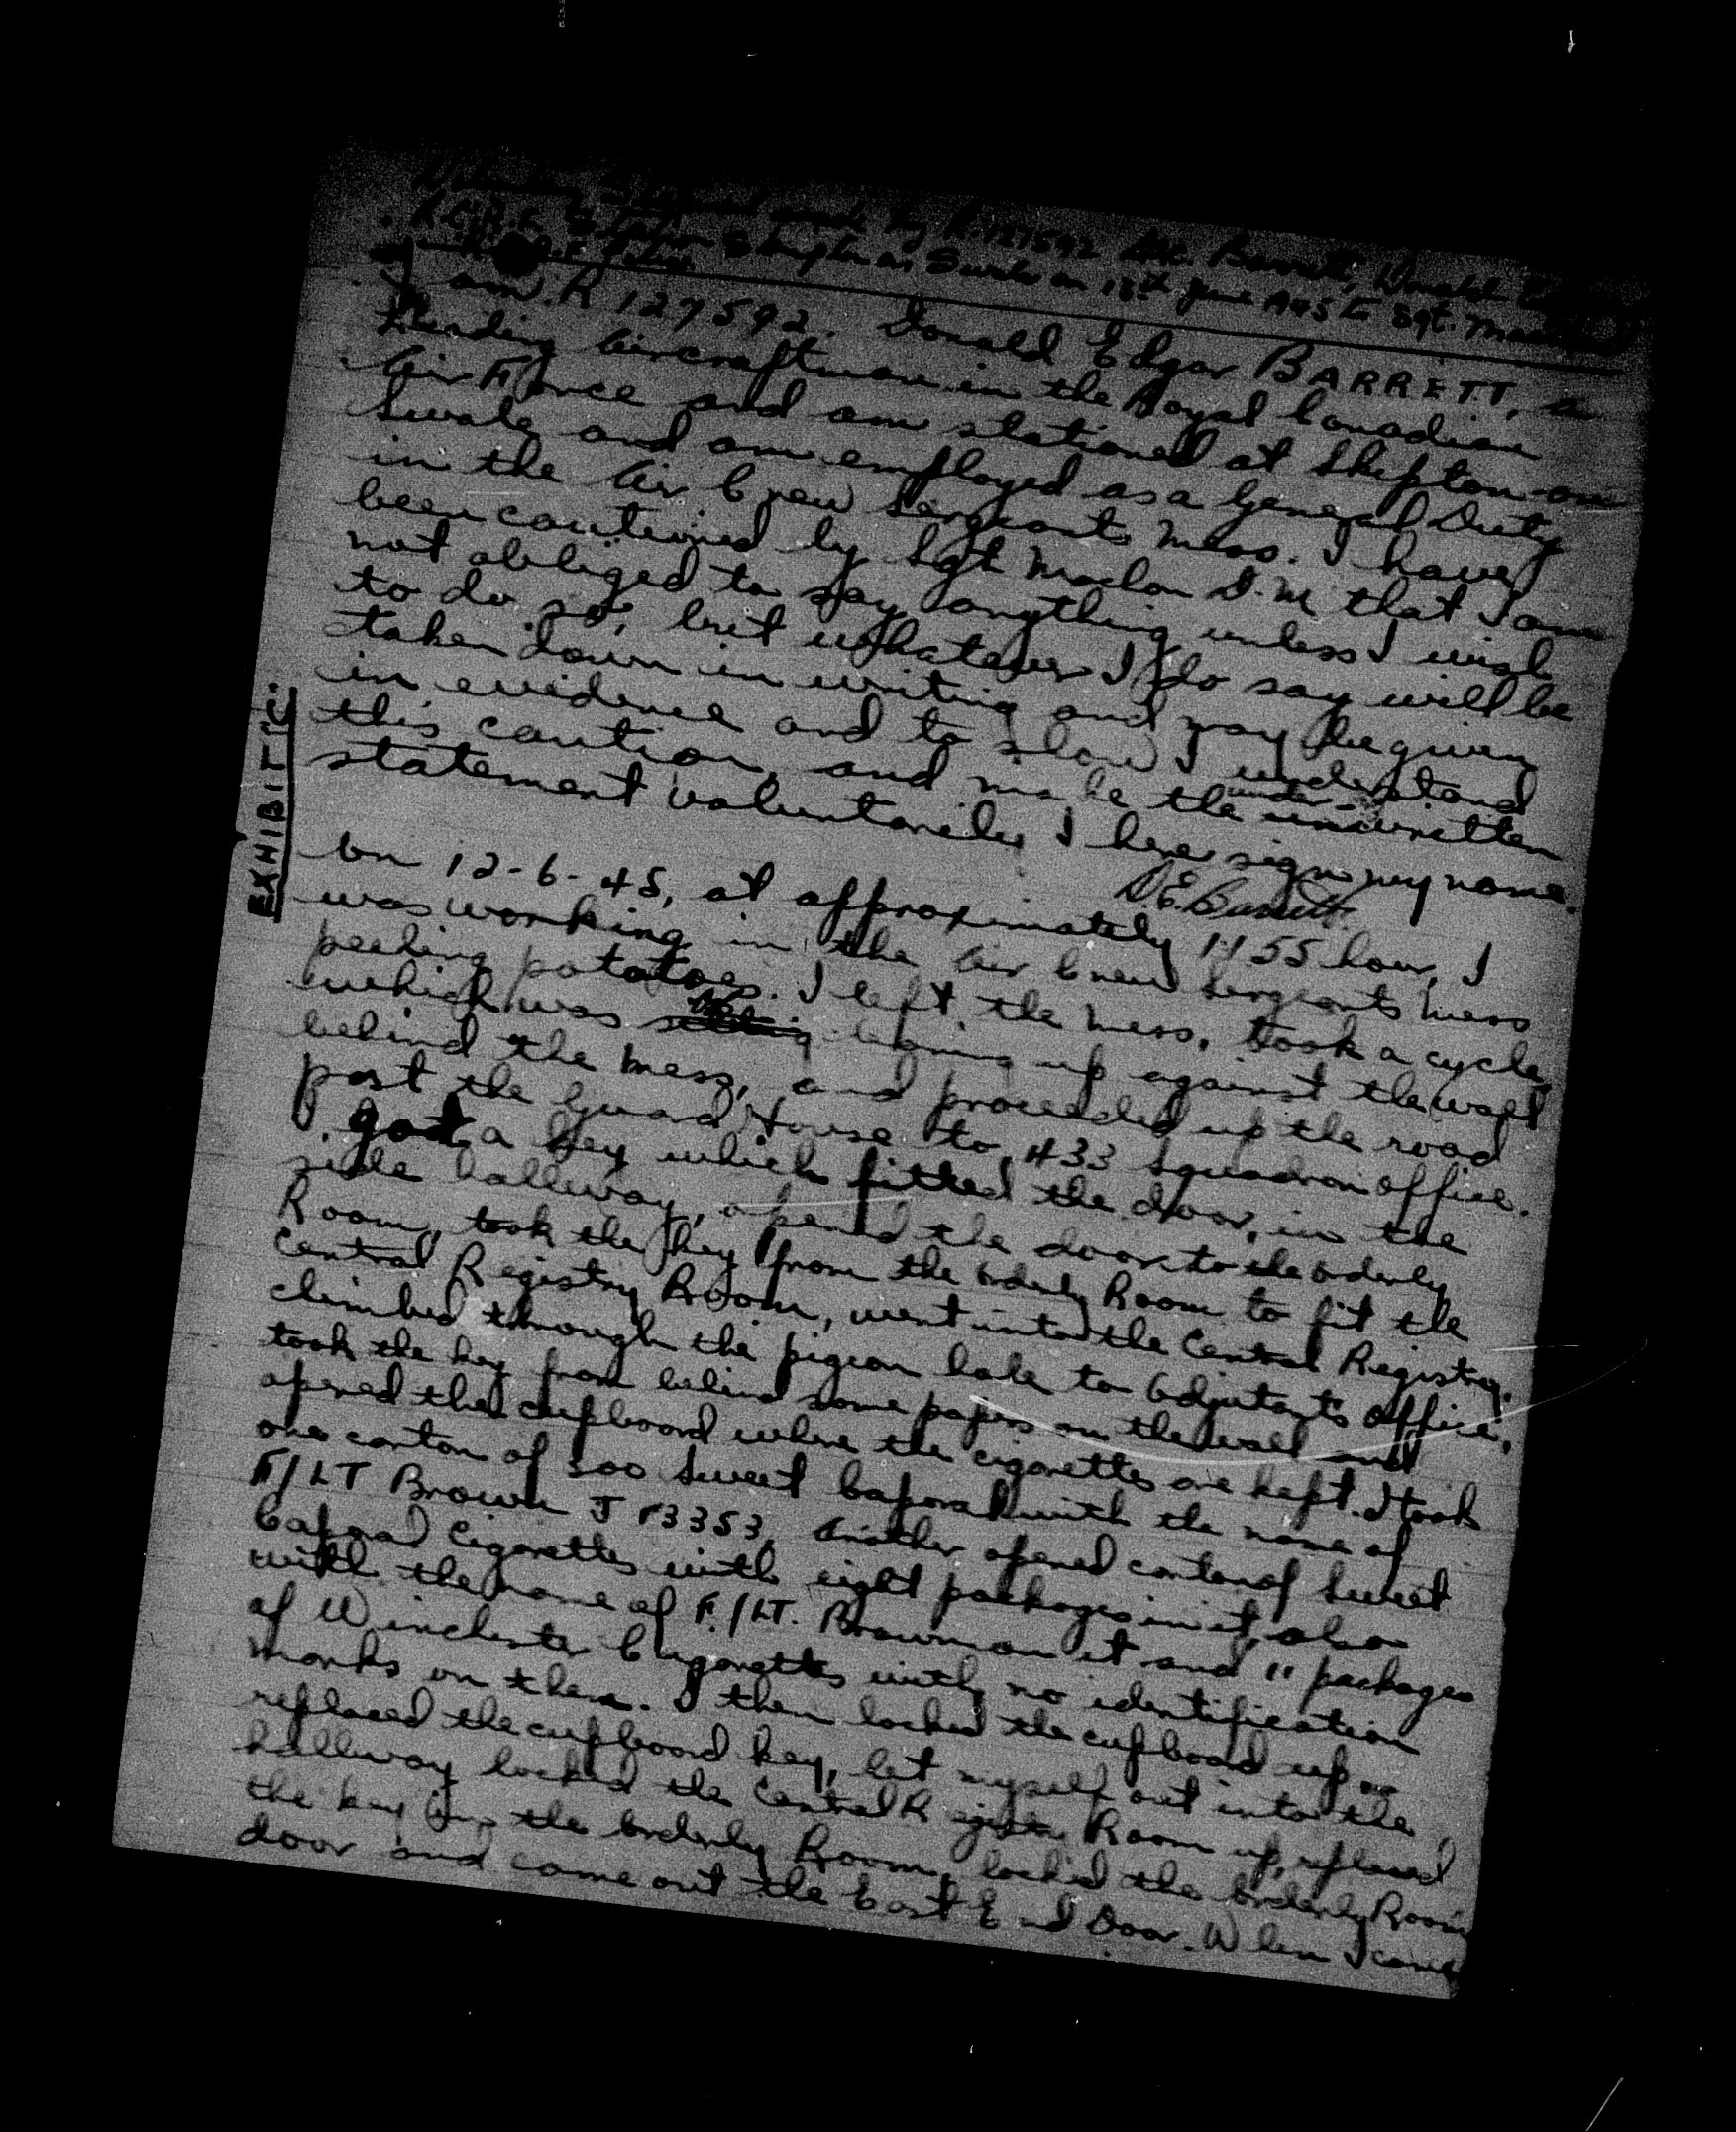 Voluntary statement made by R.127592 LAC. Barrett, Donald
R.C.A.F. Station Skipton on Swale on 13th June 1945 to Sgt.
I am R 127592. Donald Edgar BARRETT, a
Leading Aircraftman in the Royal Canadian
Air Force and am stationed at Skipton-on
Swale and am employed as a General Duty
in the Air Crew Sergeants Mess. I have
been cautioned by Sgt D.M. that I am
not obliged to say anything unless I wish
to do so, but whatever I do say will be
taken down in writing and may be given
in evidence and to show I understand
this caution, and make the under written
statement voluntarily I here sign my name.
D.E. Barrett.
EXHIBIT "C".
On 12-6-45, at approximately 1155 hour, I
was working in the Air Crew Sergeants Mess
peeling potatoes. I left the mess, took a cycle,
which was leaning up against the wall
behind the mess, and proceeded up the road
past the Guard House to 433 Squadron office.
I got a key which fitted the door, in the
side hallway, opened the door to the Orderly
Room, took the key from the Orderly Room to fit the
Central Registry Room, went into the Central Registry.
climbed through the pigeon hole to Adjutants Office,
took the key from behind some papers on the wall and
opened the cupboard where the cigarettes are kept. I took
one carton of 300 Sweet Caporal with the name of
F/LT Brown J Another opened carton of Sweet
Caporal Cigarettes with eight packages in it, also
with the name of F/LT. Brown on it and 11 packages
of Winchester Cigarettes with no identification
marks on them. I then locked the cupboard up
replaced the cupboard key, let myself out into the
hallway locked the Central Registry Room up, replaced
the key in the Orderly Room, locked the Orderly Room
door and came out the East End Door. When I came